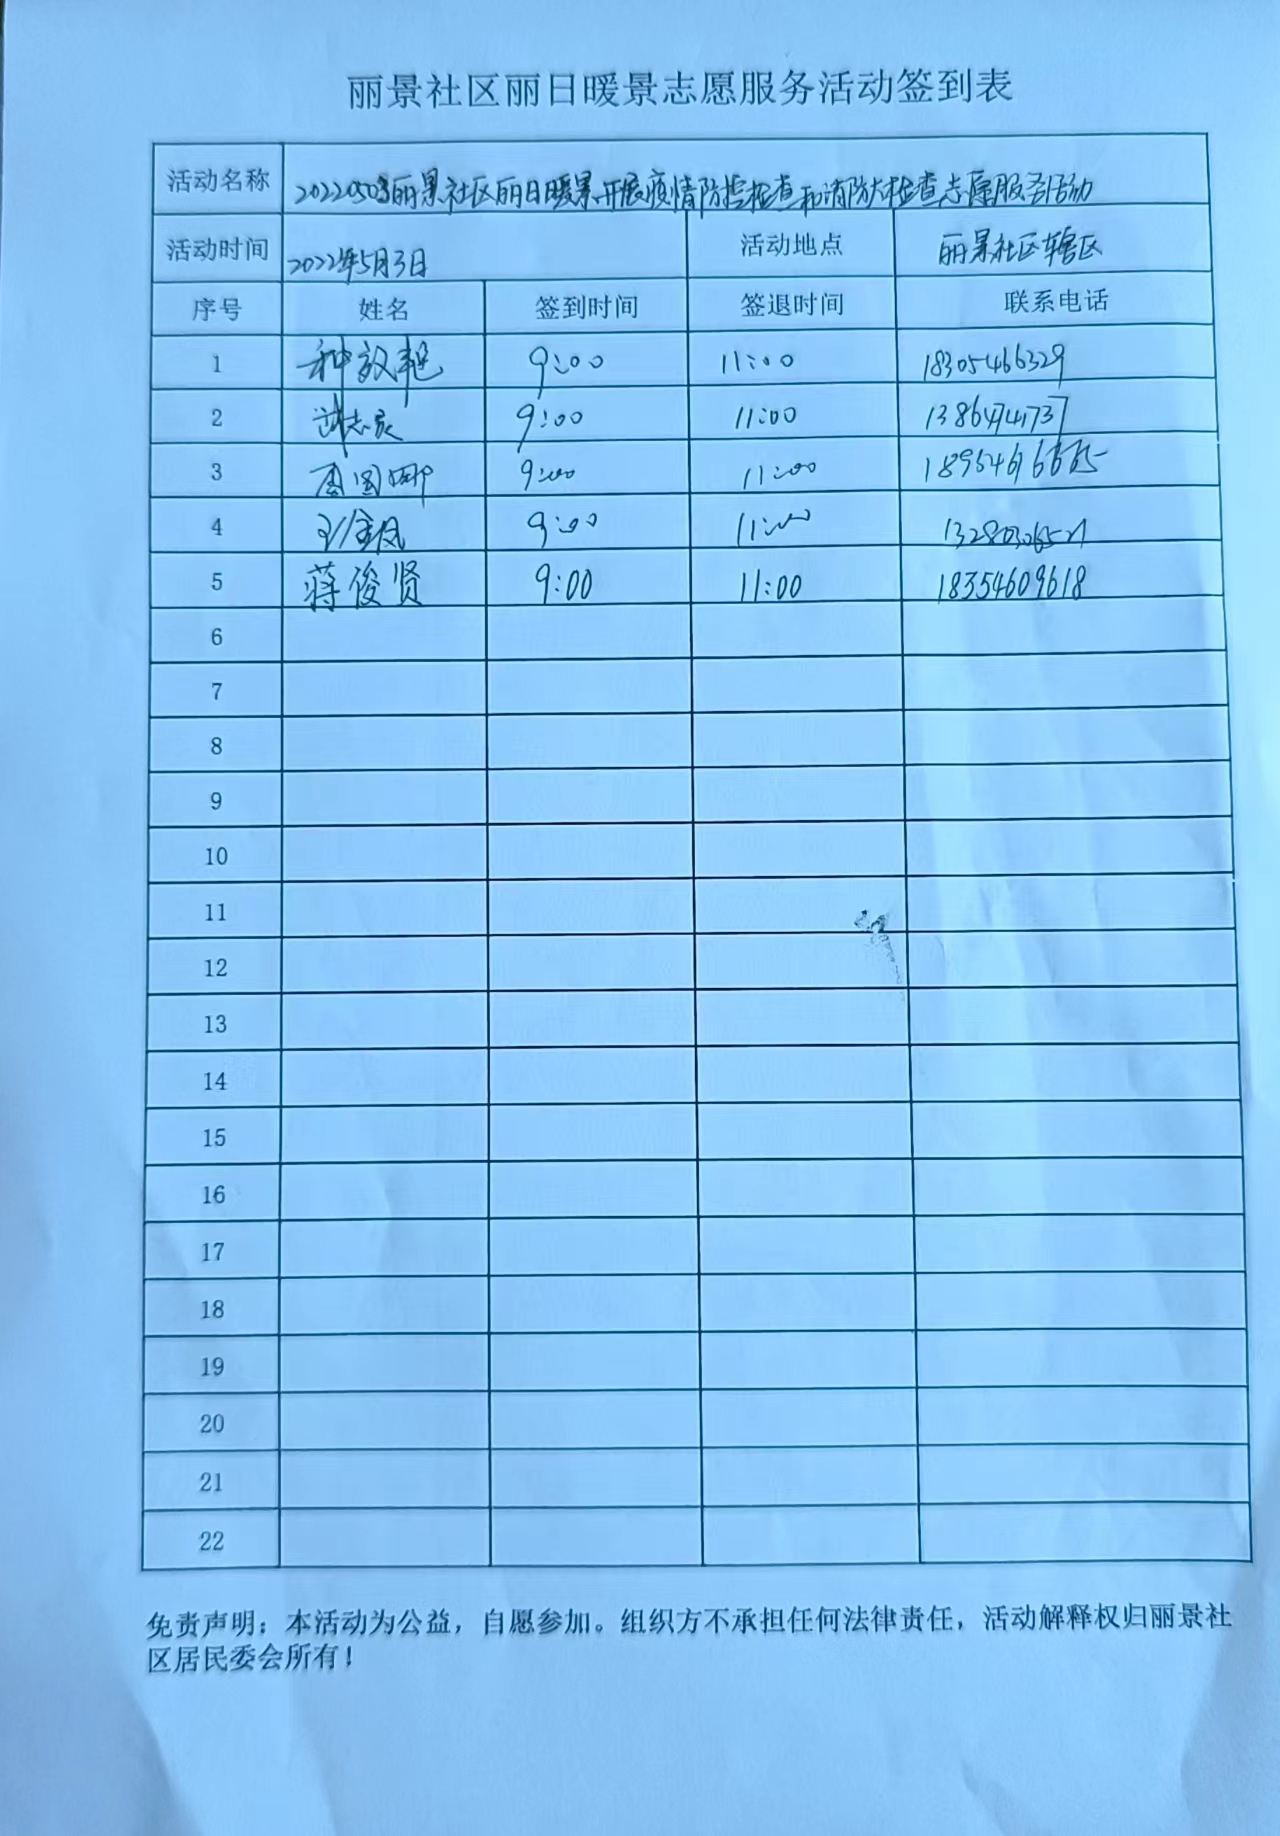 丽景社区丽日暖景志愿服务活动签到表
活动名称 20220503丽景社区丽日暖景开展疫情防控检查和消防大检查志愿服务活动
活动时间 2022年5月3日 活动地点 丽景社区辖区
序号 姓名 签到时间 签退时间 联系电话
1 9:00 11:00 18305466329
2 9:00 11:00
3 9:00 11:00
4 9:00 11:00
5 蒋俊贤 9:00 11:00 18354609618
6
7
8
9
10
11
12
13
14
15
16
17
18
19
20
21
22
免责声明：本活动为公益，自愿参加。组织方不承担任何法律责任，活动解释权归丽景社
区居民委会所有！